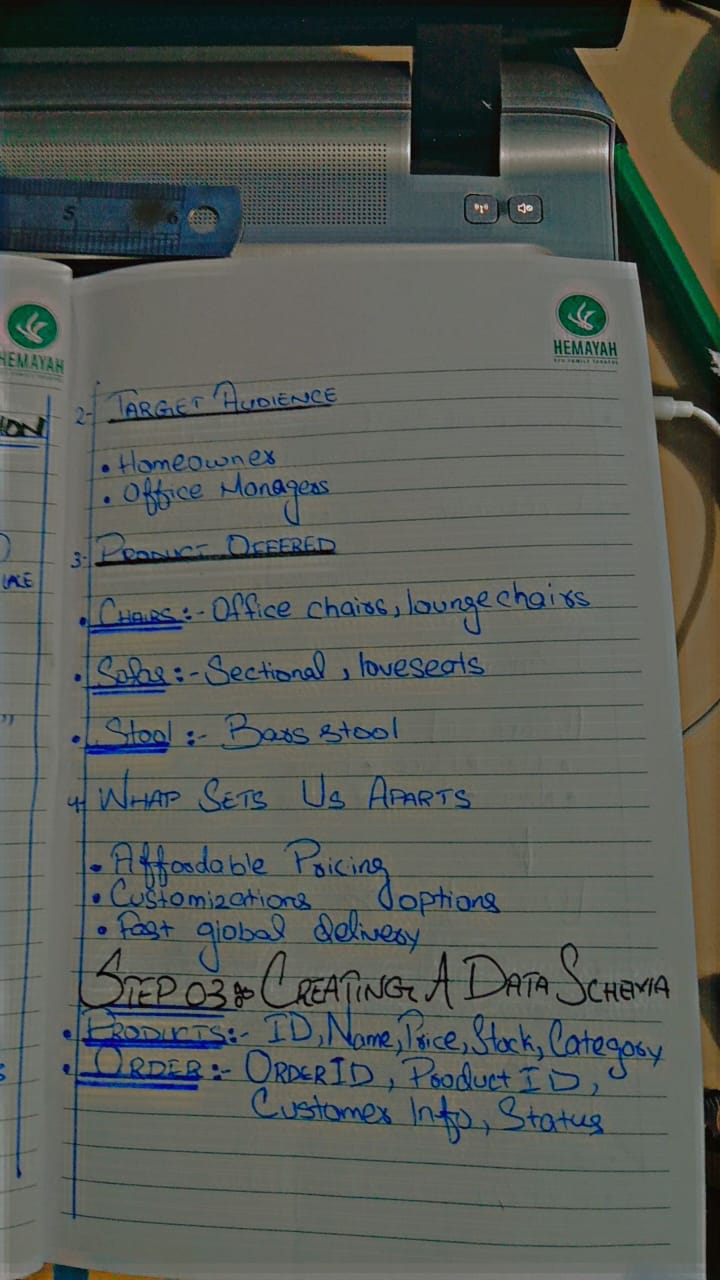 5
6
HEMAYAH
HEMAYAH
2- TARGET AUDIENCE
• Homeowner
• Office Managers
3- PRODUCT OFFERED
• CHAIRS :- Office chairs, lounge chairs
• Sofas :- Sectional, loveseats
• Stool :- Bars stool
4- WHAP SETS US APARTS
• Affordable Pricing
• Customizations options
• Fast global delivery
STEP 03 :- CREATING A DATA SCHEMA
• PRODUCTS:- ID, Name, Price, Stock, Category
• ORDER :- ORDER ID, Product ID,
Customer Info, Status